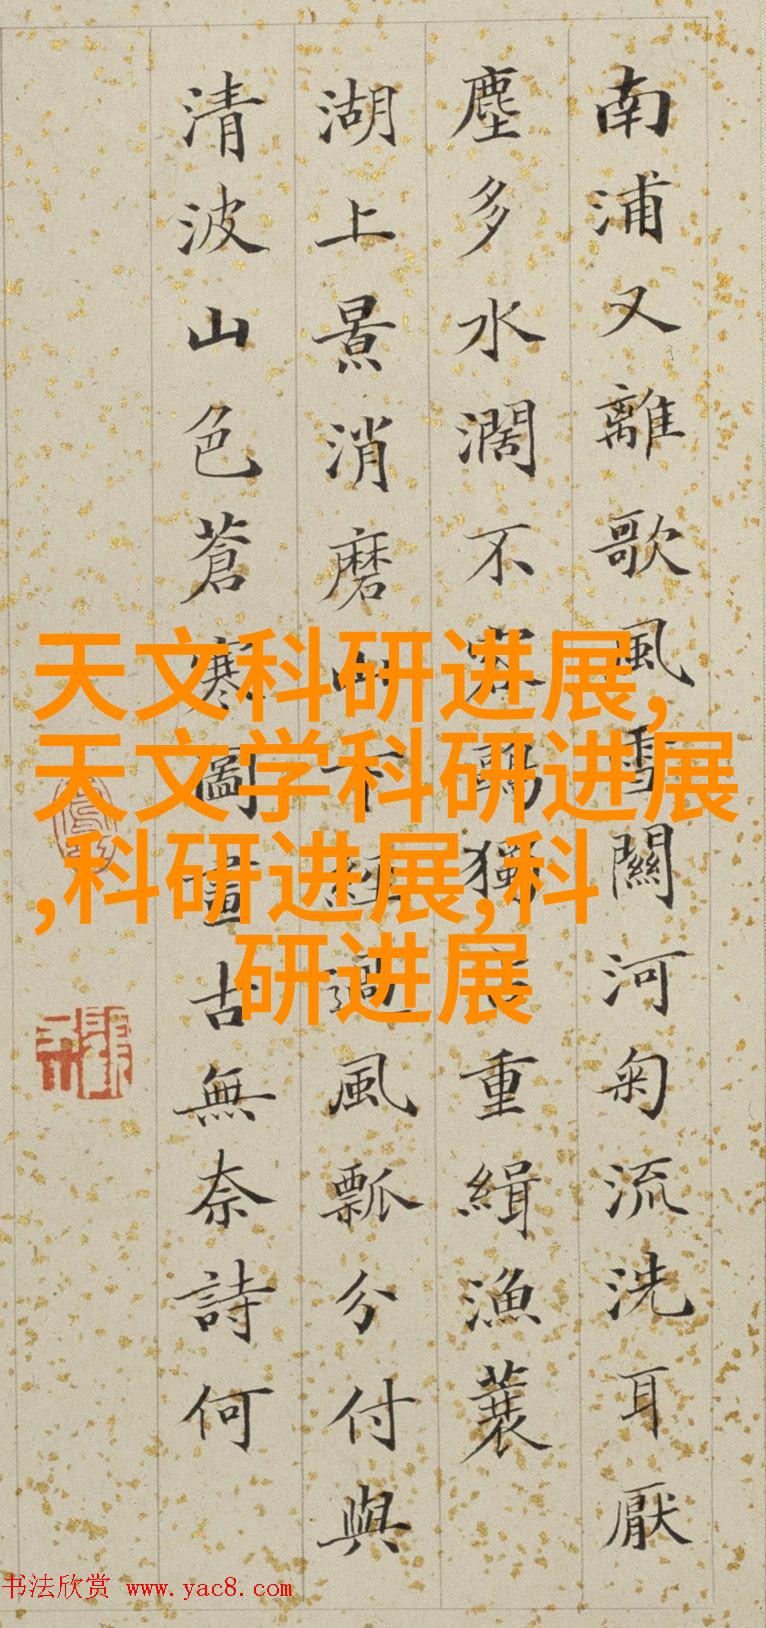 南浦又離歌風雪關河匊流洗耳厭
塵多水濶不容鷗獨占重緝漁蓑
湖上景消磨山下經過風瓢分付與
清波山色蒼寒圖畫古無奈詩何
天文科研进展,
天文学科研进展
,科研进展,科
研进展
书法欣赏 www.yac8.com